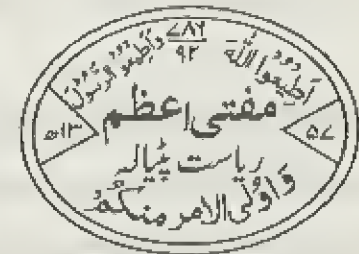 ۷۸۶
۹۲
أَطِيعُوا اللّٰهَ وَأَطِيعُوا الرَّسُوْلَ
مفتی اعظم
۱۳ھ ۵۷
ریاست پٹیالہ
وَاُولِی الامر منکم